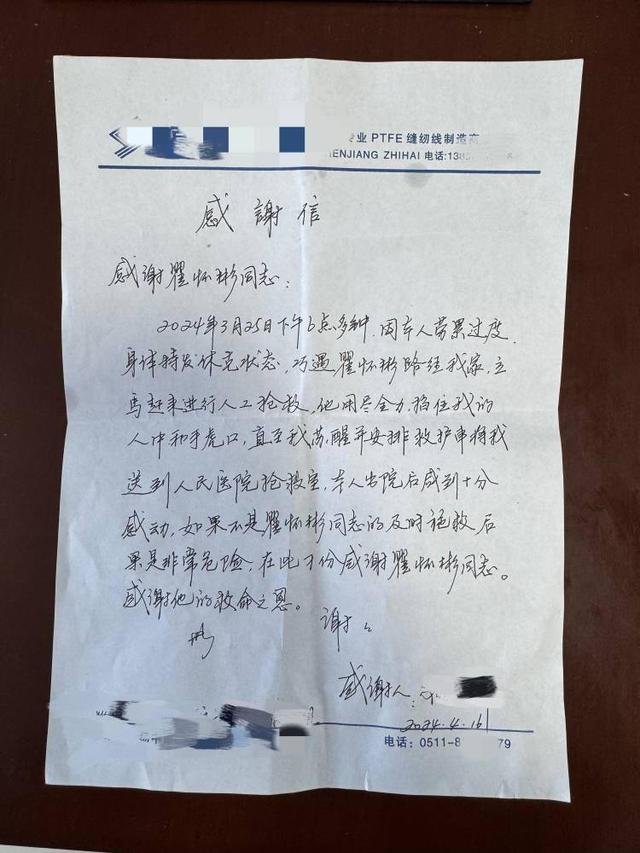 专业 PTFE 缝纫线制造商
ENJIANG ZHIHAI 电话:138
感謝信
感谢瞿怀彬同志:
2024年3月25日下午6点多钟,因本人劳累过度,
身体特发休克状态,巧遇瞿怀彬路经我家,立
马赶来进行人工抢救,他用尽全力,掐住我的
人中和手虎口,直至我苏醒并安排救护车将我
送到人民医院抢救室,本人出院后感到十分
感动,如果不是瞿怀彬同志的及时施救后
果是非常危险,在此万份感谢瞿怀彬同志。
感谢他的救命之恩。
谢
感谢人:
2024.4.16
电话:0511-8 79